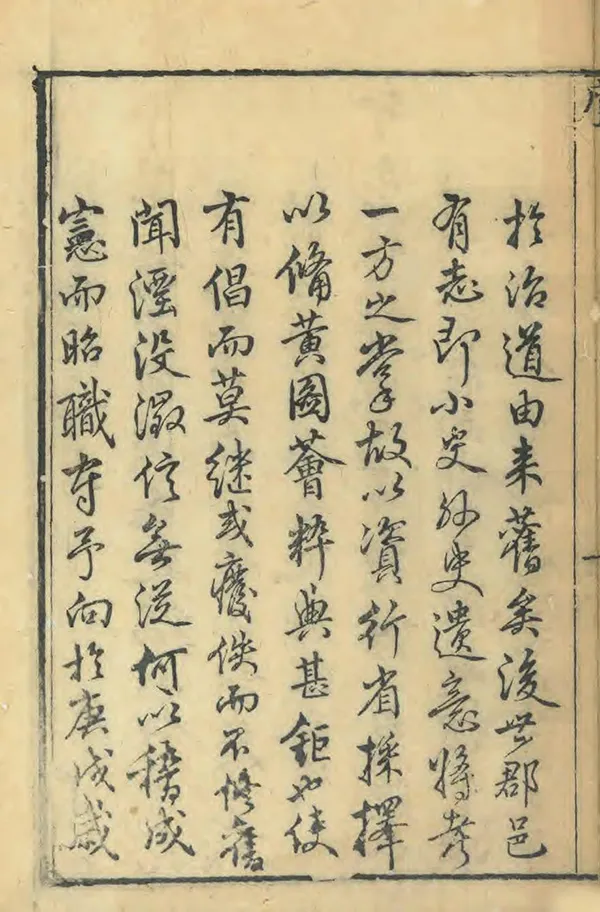 於治道由来舊矣後世郡邑
有志即小史外史遺意將考
一方之掌故以資行省採擇
以備黄圖薈粹典甚鉅也使
有倡而莫継或癈倐而不修舊
聞湮没徵信無従何以稽成
憲而昭職守予向於庚戌歳